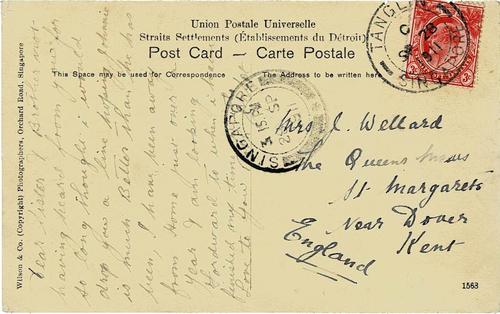 Union Postale Universelle
Straits Settlements (Établissements du Détroit)
Post Card — Carte Postale
This Space may be used for Correspondence
The Address to be written here
Wilson & Co. (Copyright) Photographers, Orchard Road, Singapore
Dear Sister & Brother not
having heard from you for
so long thought i would
drop you a line hoping
is much Better than he has
been I have been away
from Home just over
Year & am looking
forward to when i
finished my time
Love to You
Mrs C. Wellard
The Queens
St Margarets
Near Dover
Kent
England
TANGLIN
SINGAPORE
SINGAPORE
1563